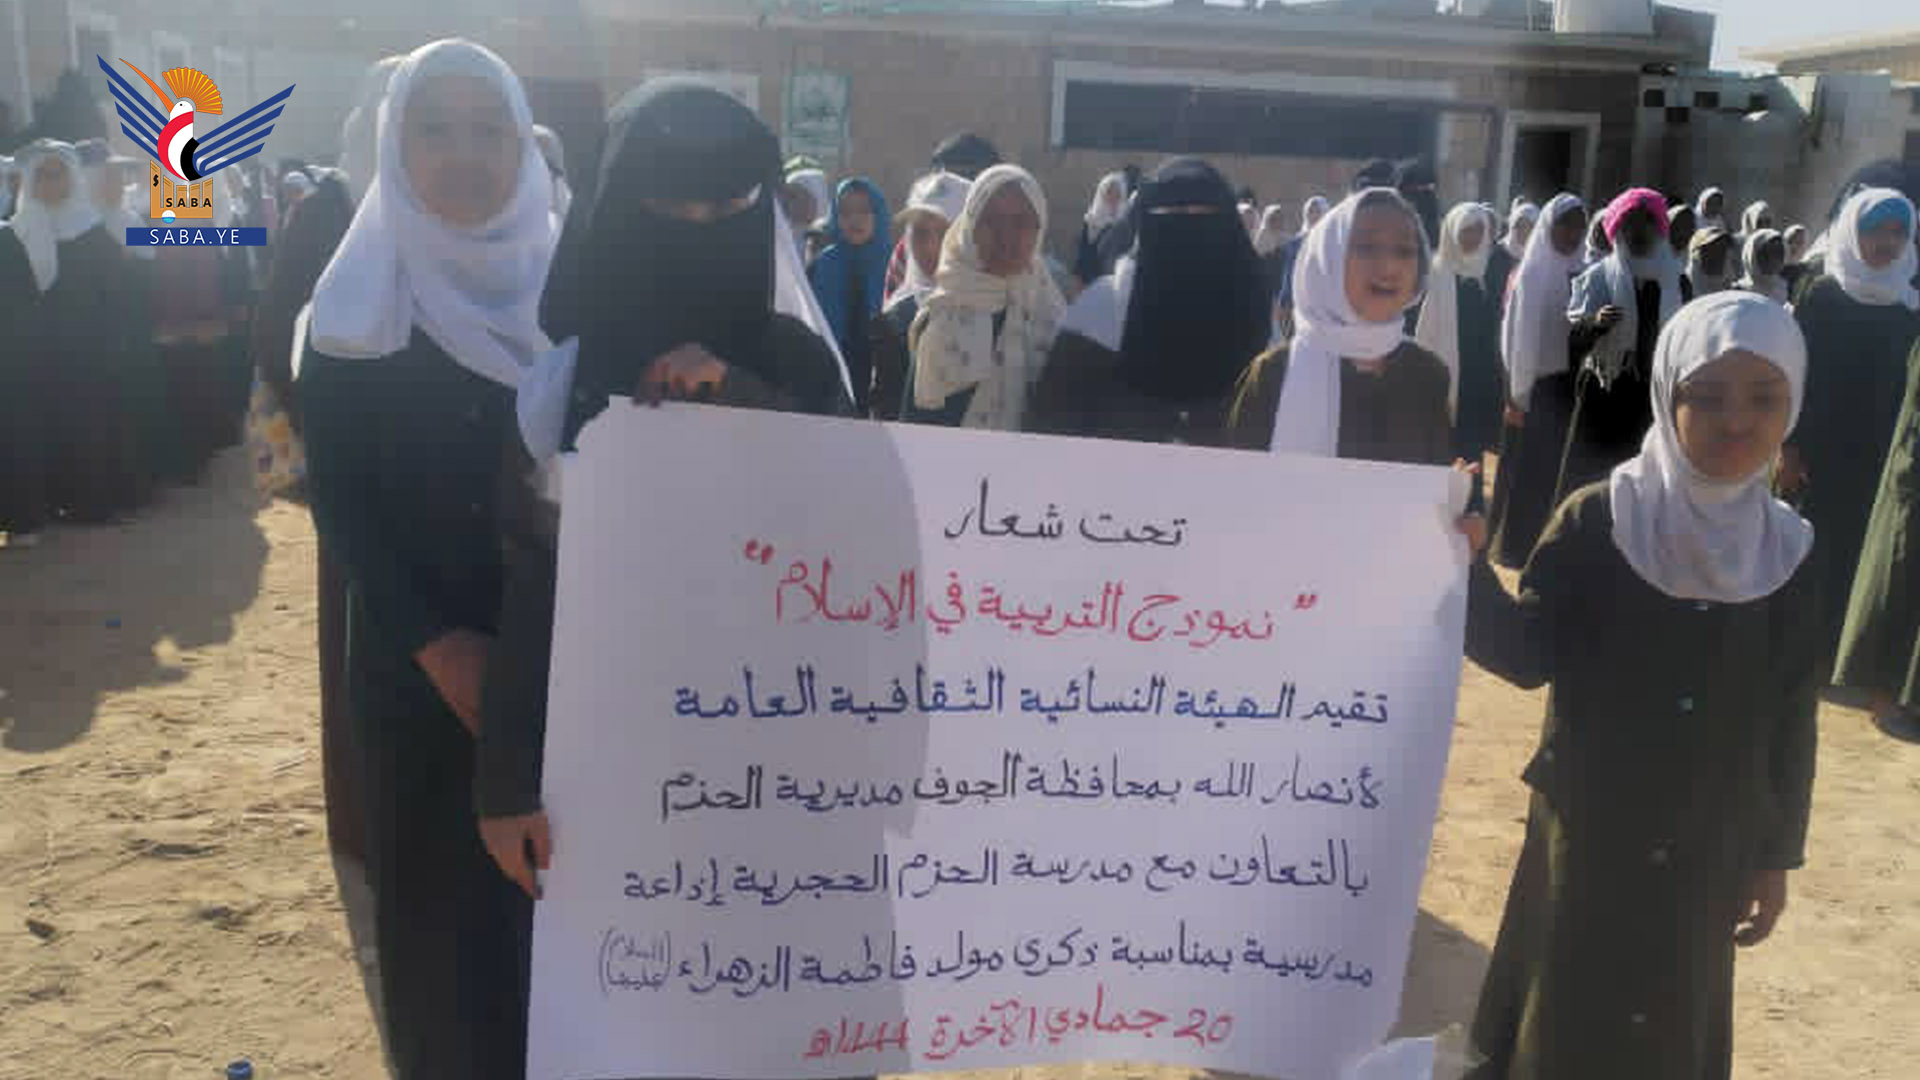 SABA
SABA.YE
تحت شعار
"نموذج التربية في الإسلام"
تقيم الهيئة النسائية الثقافية العامة
لأنصار الله بمحافظة الجوف مديرية الحزم
بالتعاون مع مدرسة الحزم الحجرية إذاعة
مدرسية بمناسبة ذكرى مولد فاطمة الزهراء (عليها السلام)
20 جمادي الآخرة 1444هـ